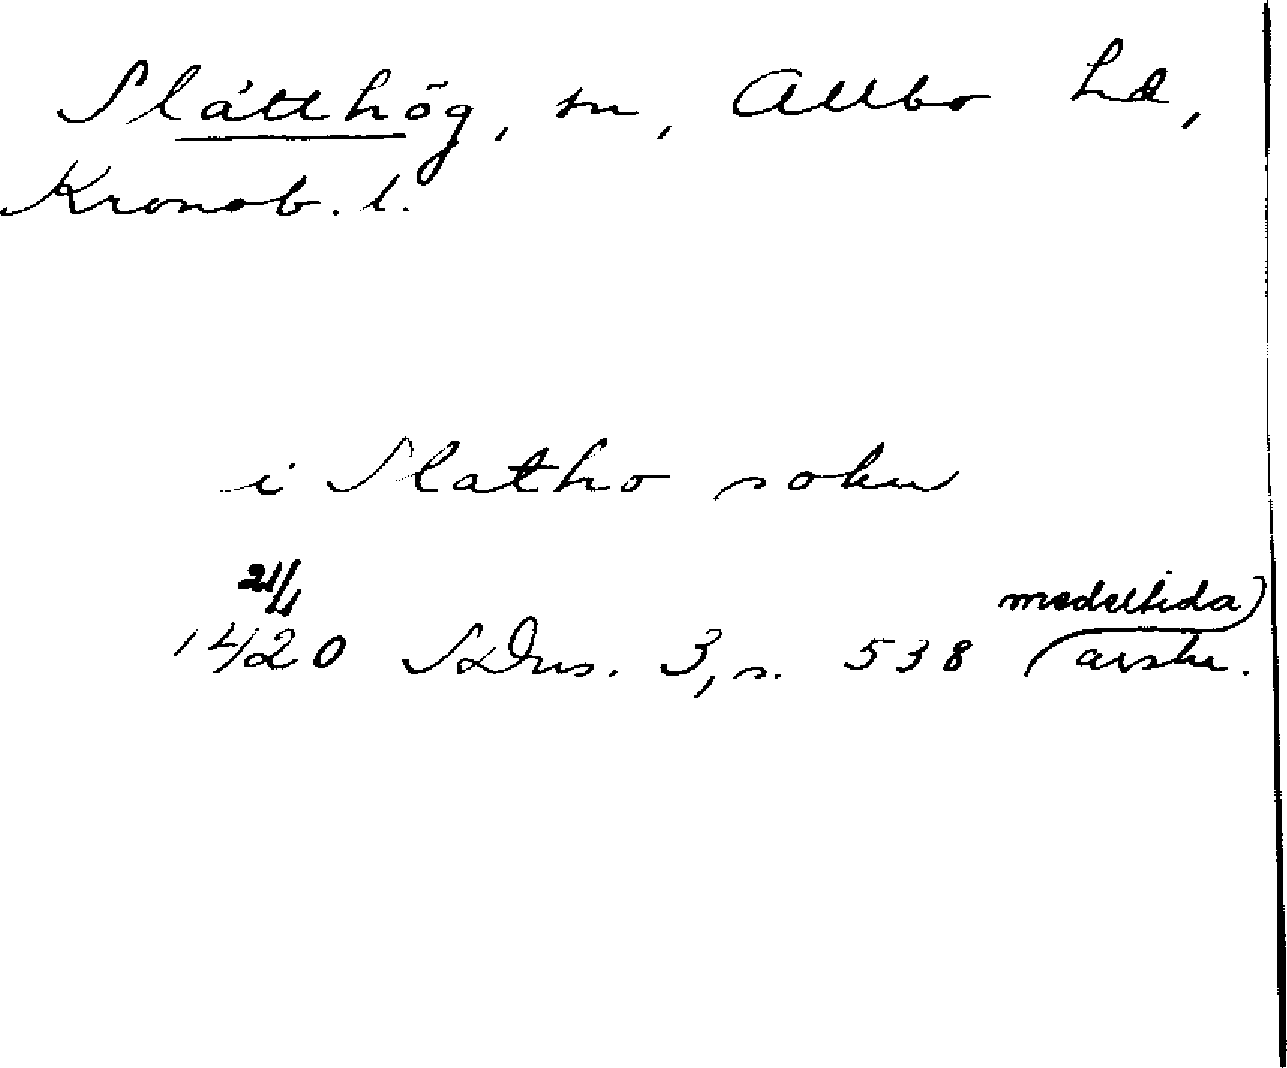 Slätthög, sn, Allbo hd,
Kronob. l.
i Slatho sokn
21/1
medeltida
1420 SDns. 3, s. 538 avskr.